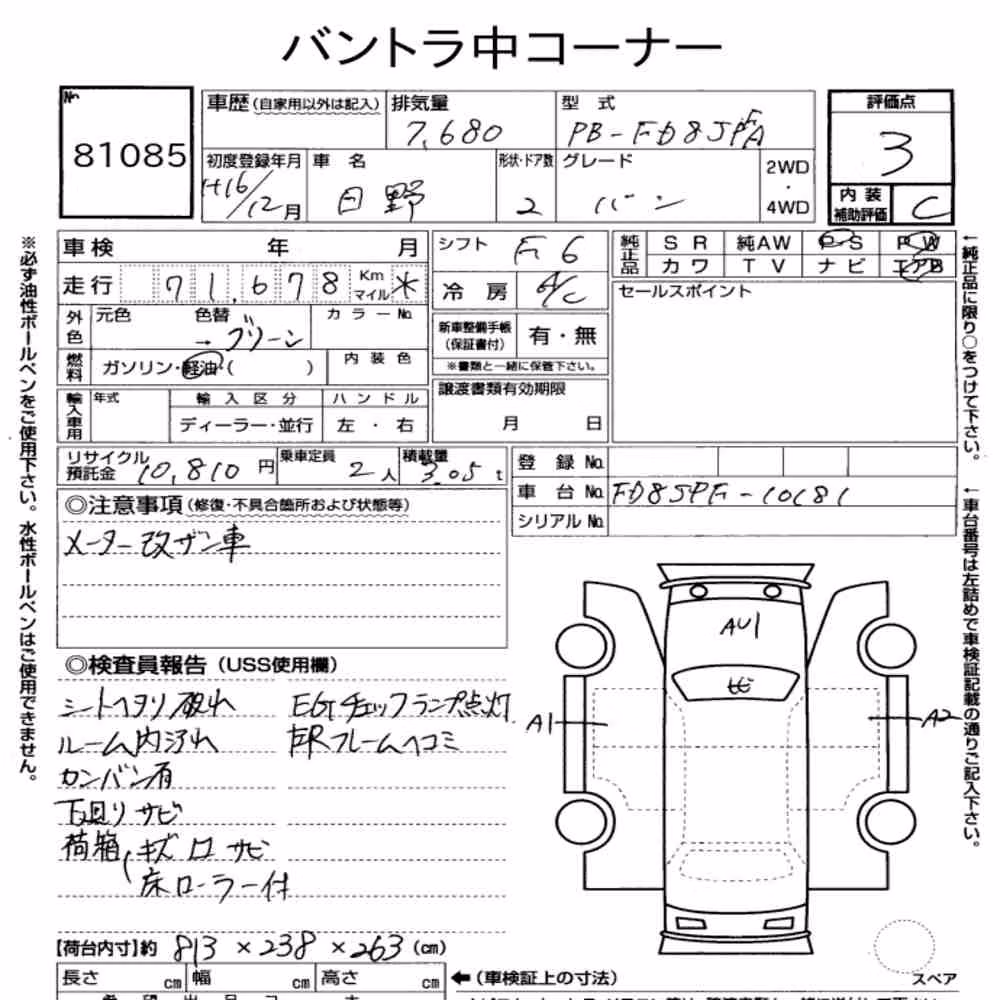 バントラ中コーナー
№ 81085
車歴(自家用以外は記入) 排気量 7,680 型式
初度登録年月 H16/12月 車名 日野 形状・ドア数 2 グレード バン 2WD・4WD
評価点 3
内装補助評価 C
※必ず油性ボールペンをご使用下さい。水性ボールペンはご使用できません。
車検 年 月
走行 71,678 Km マイル *
外色 元色 色替 → グリーン カラーNo.
燃料 ガソリン・軽油・( ) 内装色
輸入車用 年式 輸入区分 ディーラー・並行 ハンドル 左・右
シフト F6
冷房 A/C
新車整備手帳(保証書付) 有・無
※書類と一緒に保管下さい。
譲渡書類有効期限 月 日
純正品 SR 純AW PS PW
カワ TV ナビ エアB
セールスポイント
←純正品に限り○をつけて下さい。
リサイクル預託金 10,810円 乗車定員 2人 積載量 3.05t
登録No.
車台No. FD8JPF-10181
シリアルNo.
←車台番号は左詰めで車検証記載の通りご記入下さい。
◎注意事項(修復・不具合箇所および状態等)
メーター改ザン車
◎検査員報告(USS使用欄)
シートヘタリ破れ EGチェックランプ点灯
ルーム内汚れ
カンバン有
下回りサビ
荷箱(キズ ロ サビ
床ローラー付
AU1
A1
A2
【荷台内寸】約 813×238×263(cm)
長さ cm 幅 cm 高さ cm ←(車検証上の寸法)
スペア